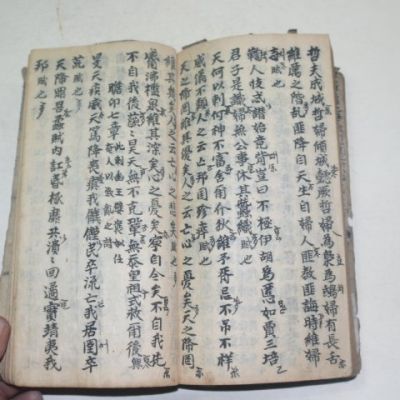 哲夫成城哲婦傾城懿厥哲婦為梟為鴟婦有長舌
維厲之階亂匪降自天生自婦人匪教匪誨時維婦
寺賦也
鞫人忮忒譖始竟背豈曰不極伊胡為慝如賈三倍
君子是識婦無公事休其蠶織賦也
天何以刺何神不富舍爾介狄維予胥忌不吊不祥
威儀不類人之云亡邦國殄瘁賦也
天之降罔維其優矣人之云亡心之憂矣天之降罔
維其幾矣人之云亡心之悲矣賦也
觱沸檻泉維其深矣心之憂矣寧自今矣不自我先
不自我後藐藐昊天無不克鞏無忝皇祖式救爾後
瞻卬七章 此刺幽王嬖褒姒任 以致亂之詩
旻天疾威天篤降喪瘨我饑饉民卒流亡我居圉卒
荒賦也
天降罪罟蟊賊內訌昏椓靡共潰潰回遹實靖夷我
邦賦也